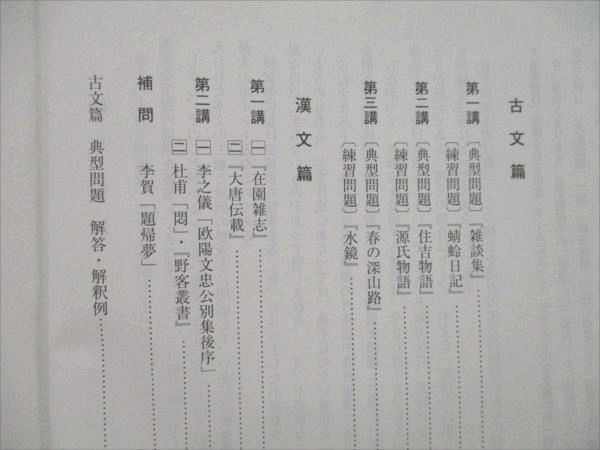 古文篇
第一講 〔典型問題〕『雑談集』……………
〔練習問題〕『蜻蛉日記』……………
第二講 〔典型問題〕『住吉物語』……………
〔練習問題〕『源氏物語』……………
第三講 〔典型問題〕『春の深山路』……………
〔練習問題〕『水鏡』……………
漢文篇
第一講 一 『在園雑志』……………
二 『大唐伝載』……………
第二講 一 李之儀「欧陽文忠公別集後序」……………
二 杜甫「悶」・『野客叢書』……………
補問 李賀「題帰夢」……………
古文篇 典型問題 解答・解釈例……………